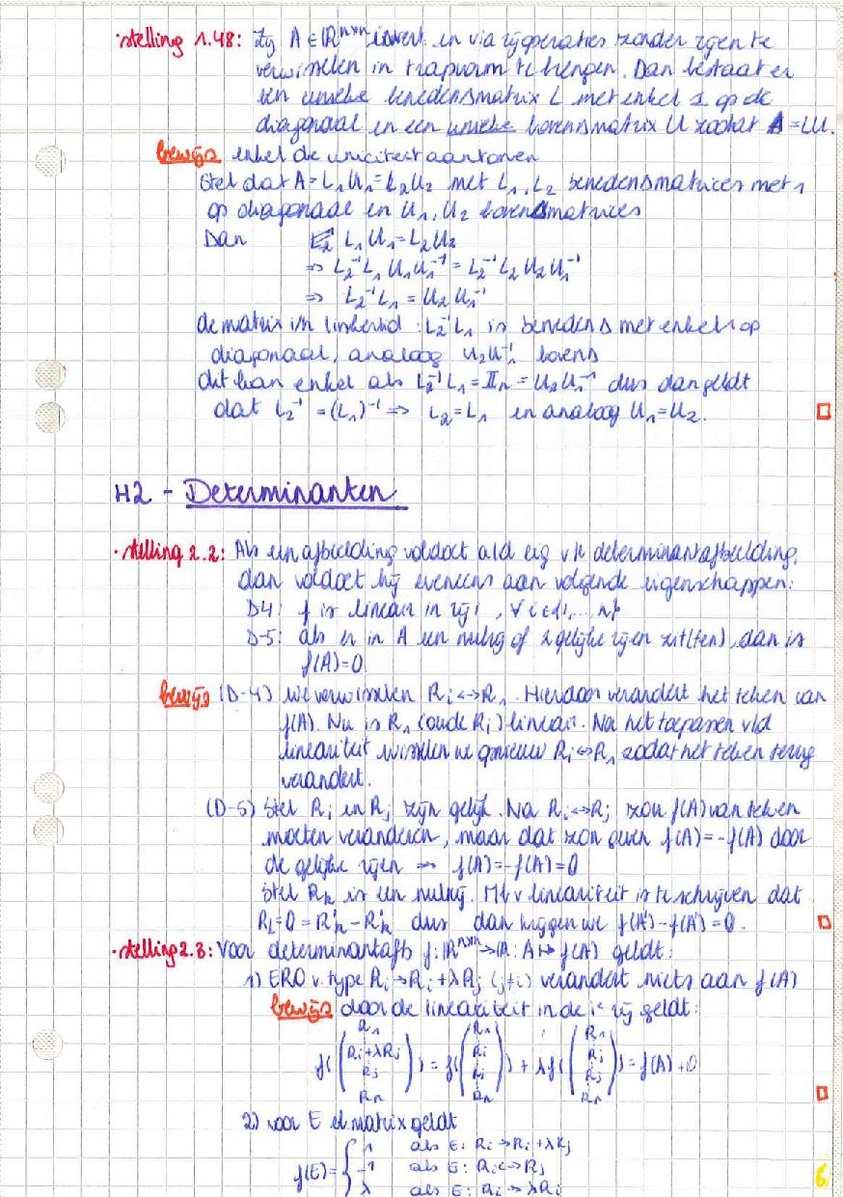 ·stelling 1.48: Zij A ∈ ℝⁿˣⁿ invert. en via rijoperaties zonder rijen te
verwisselen in trapvorm te brengen. Dan bestaat er
een unieke benedenΔmatrix L met enkel 1 op de
diagonaal en een unieke bovenΔmatrix U zodat A = LU.
bewijs enkel de uniciteit aantonen
Stel dat A = L₁U₁ = L₂U₂ met L₁, L₂ benedenΔmatrices met 1
op diagonaal en U₁, U₂ bovenΔmatrices
Dan L₁U₁ = L₂U₂
⇒ L₂⁻¹L₁U₁U₁⁻¹ = L₂⁻¹L₂U₂U₁⁻¹
⇒ L₂⁻¹L₁ = U₂U₁⁻¹
de matrix i/h linkerlid: L₂⁻¹L₁ is benedenΔ met enkel 1 op
diagonaal, analoog U₂U₁⁻¹ bovenΔ
dit kan enkel als L₂⁻¹L₁ = 𝕀ₙ = U₂U₁⁻¹ dus dan geldt
dat L₂⁻¹ = (L₁)⁻¹ ⇒ L₂ = L₁ en analoog U₁ = U₂. □
H2 - Determinanten
·stelling 2.2: Als een afbeelding voldoet a/d eig v/e determinantafbeelding,
dan voldoet hij eveneens aan volgende eigenschappen:
D4: f is lineair in rij i, ∀ i ∈ {1,...,n}
D-5: als er in A een nulrij of 2 gelijke rijen zit(ten), dan is
f(A)=0.
bewijs (D-4) We verwisselen Rᵢ ↔ R₁. Hierdoor verandert het teken van
f(A). Nu is R₁ (oude Rᵢ) lineair. Na het toepassen v/d
lineariteit wisselen we opnieuw Rᵢ ↔ R₁ zodat het teken terug
verandert.
(D-5) Stel Rᵢ en Rⱼ zijn gelijk. Na Rᵢ ↔ Rⱼ zou f(A) van teken
moeten veranderen, maar dat zou geven f(A) = -f(A) door
de gelijke rijen ⇒ f(A) = -f(A) = 0
Stel Rₖ is een nulrij. M b v lineariteit is te schrijven dat
= 0 = R'ₖ - R'ₖ dus dan krijgen we f(A') - f(A') = 0. □
·stelling 2.3: Voor determinantafb f: ℝⁿˣⁿ → ℝ: A ↦ f(A) geldt:
1) ERO v. type Rᵢ → Rᵢ + λRⱼ (j≠i) verandert niets aan f(A)
bewijs door de lineariteit in de iᵉ rij geldt:
R₁ R₁ R₁
f( Rᵢ+λRⱼ ) = f( Rᵢ ) + λf( Rⱼ ) = f(A) + 0
Rⱼ Rⱼ Rⱼ
Rₙ Rₙ Rₙ □
2) voor E el matrix geldt
1 als E: Rᵢ → Rᵢ + λRⱼ
f(E) = { -1 als E: Rᵢ ↔ Rⱼ
λ als E: Rᵢ → λRᵢ
6